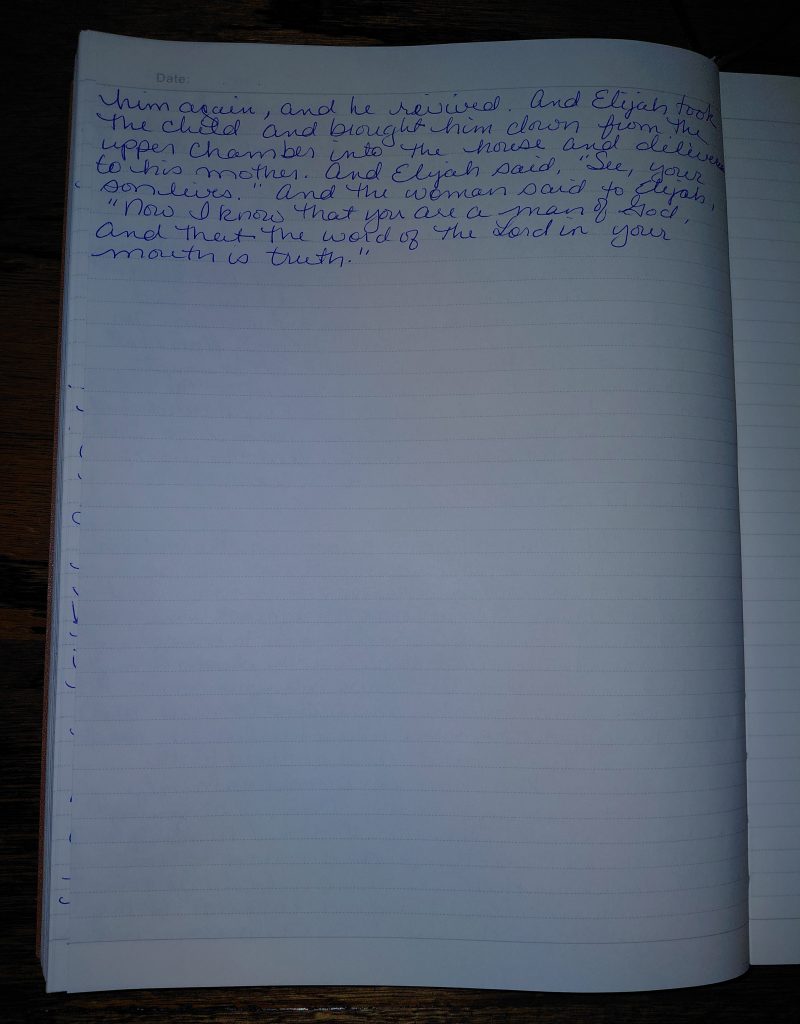 Date:
him again, and he revived. And Elijah took
the child and brought him down from the
upper chamber into the house and delivered
to his mother. And Elijah said, "See, your
son livrs." And the woman said to Elijah,
"Now I know that you are a man of God,
and that the word of the Lord in your
mouth is truth."